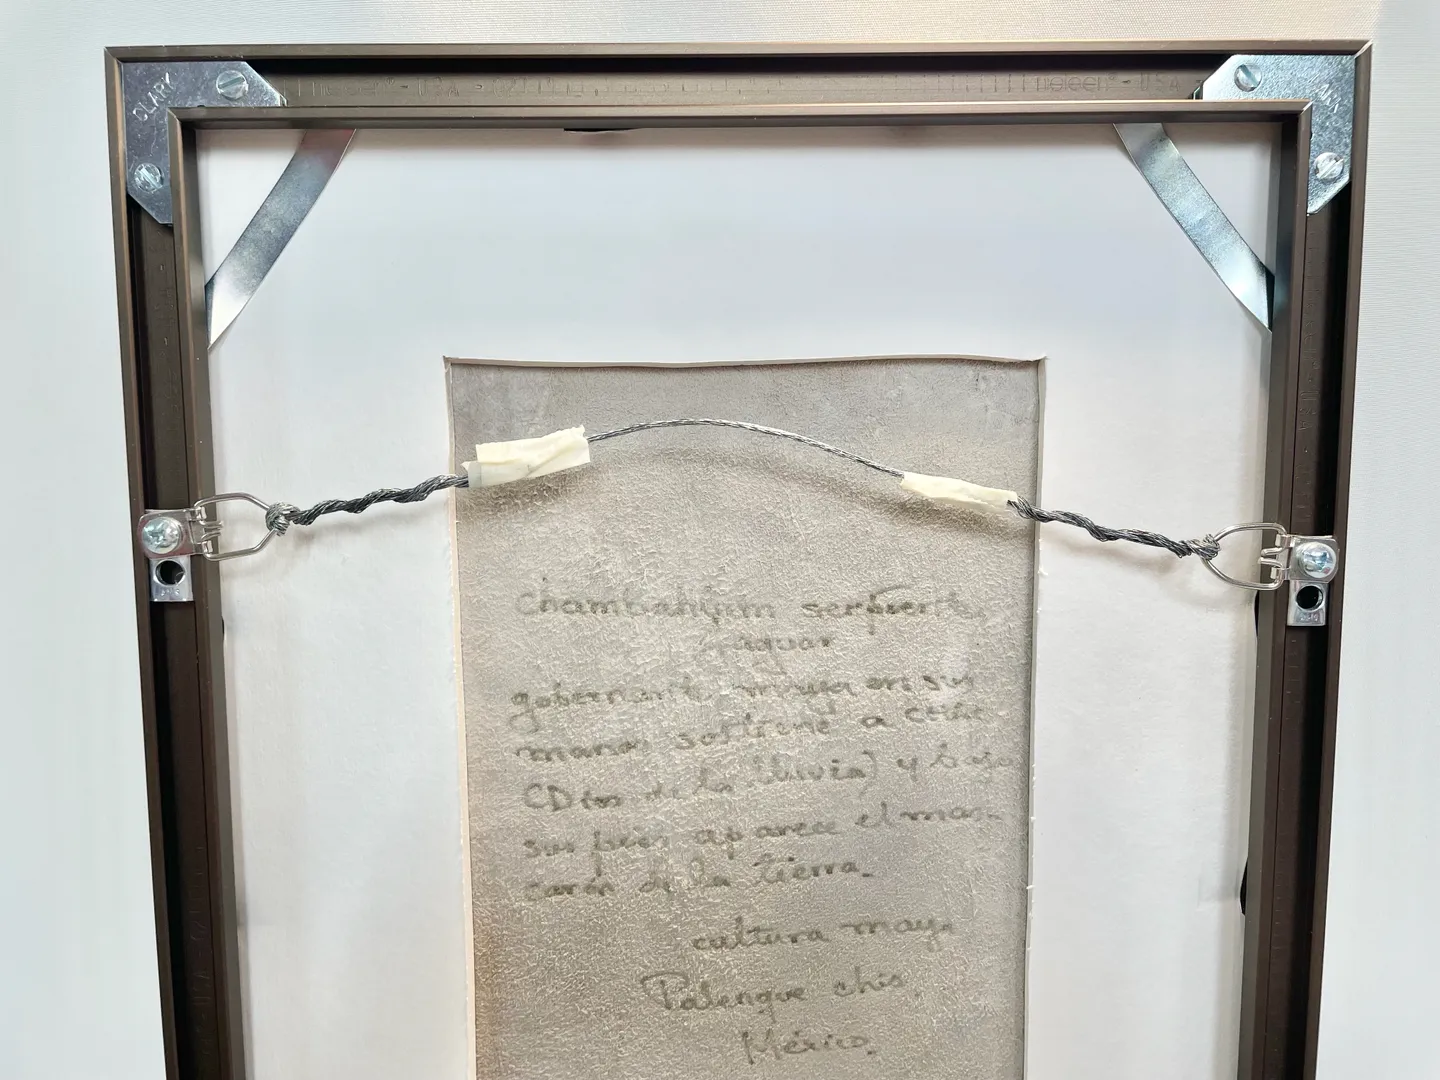 CLARK
USA
neleen - USA
serpiente,
Jaguar
gobernante maya en sus
manos sostiene a
CDios de la lluvia) y bajo
sus pies aparece el mas-
carón de la tierra.
cultura maya
Palenque chis.
México.